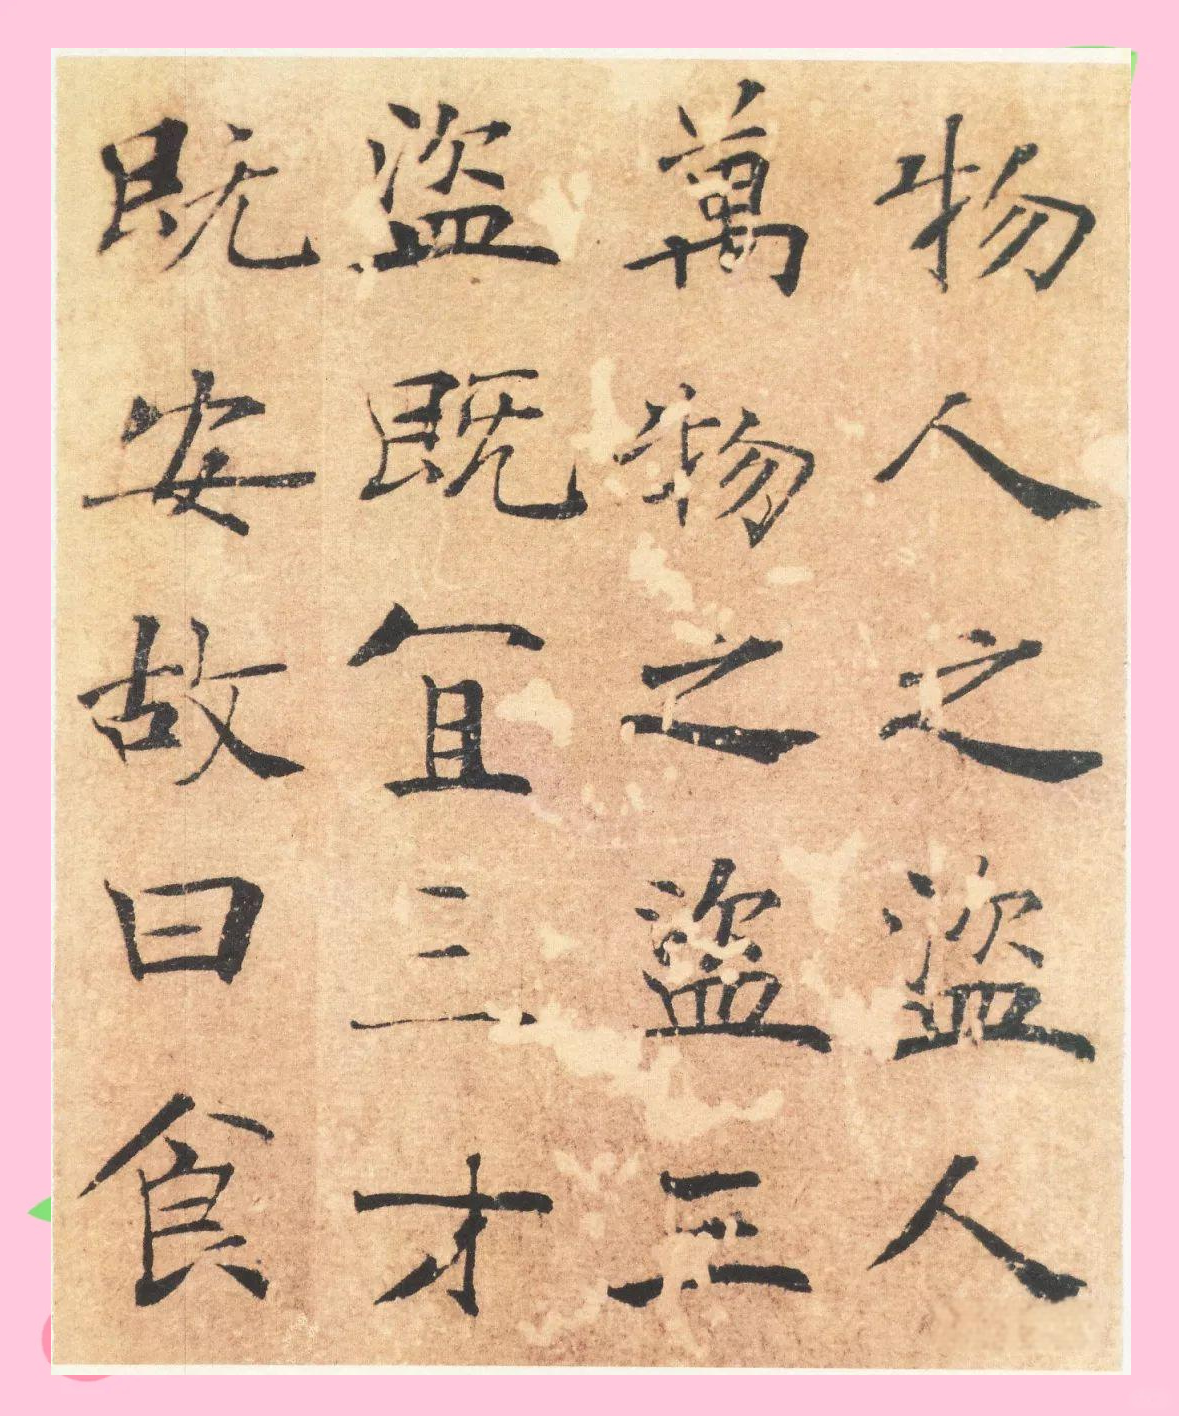 物人之盗人
萬物之盗三
盗既宜三才
既安故曰食